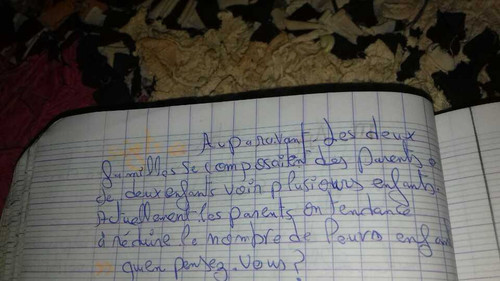 Auparavant, les deux
familles se composaient des parents e
de deux enfants voir plusieurs enfants.
Actuellement les parents on tendance
à réduire le nombre de leurs enfan
quen pensez-vous?